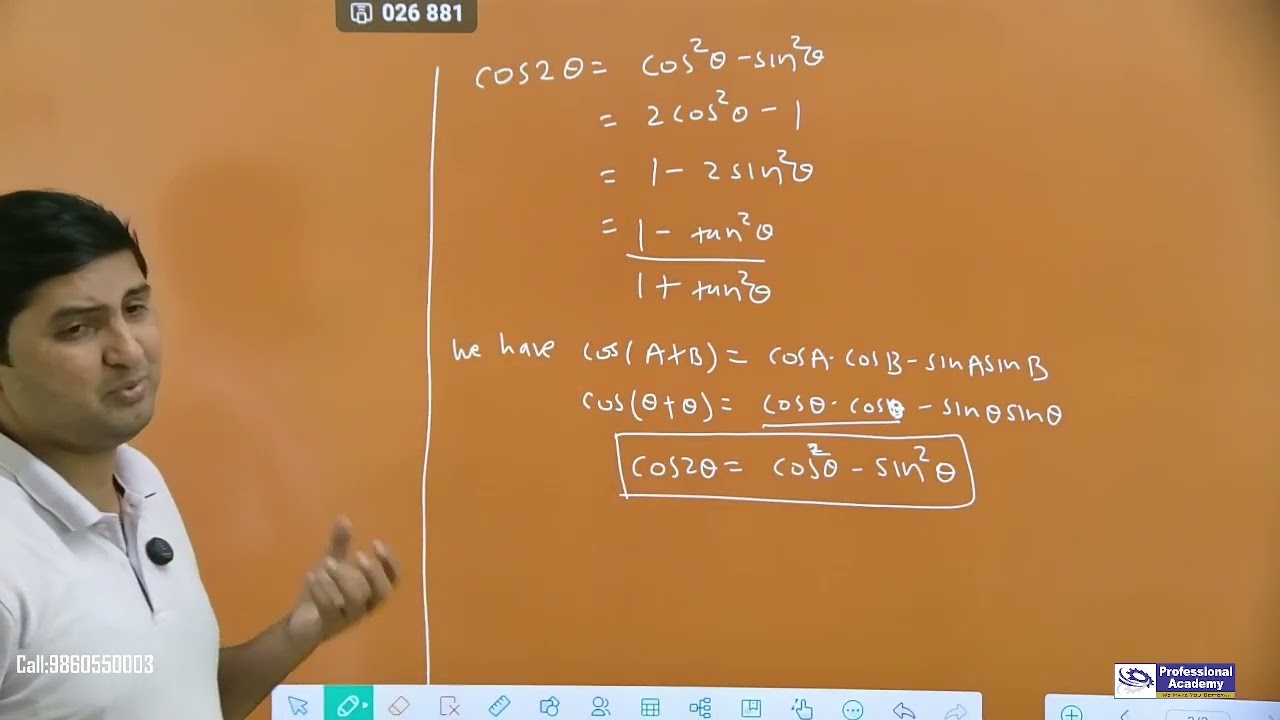 026 881
cos2θ = cos²θ - sin²θ
= 2cos²θ - 1
= 1 - 2sin²θ
= 1 - tan²θ
1 + tan²θ
we have cos(A+B) = cosA. cosB - sinAsinB
cos(θ+θ) = cosθ. cosθ - sinθsinθ
cos2θ = cos²θ - sin²θ
Call:9860550003
Professional
Academy